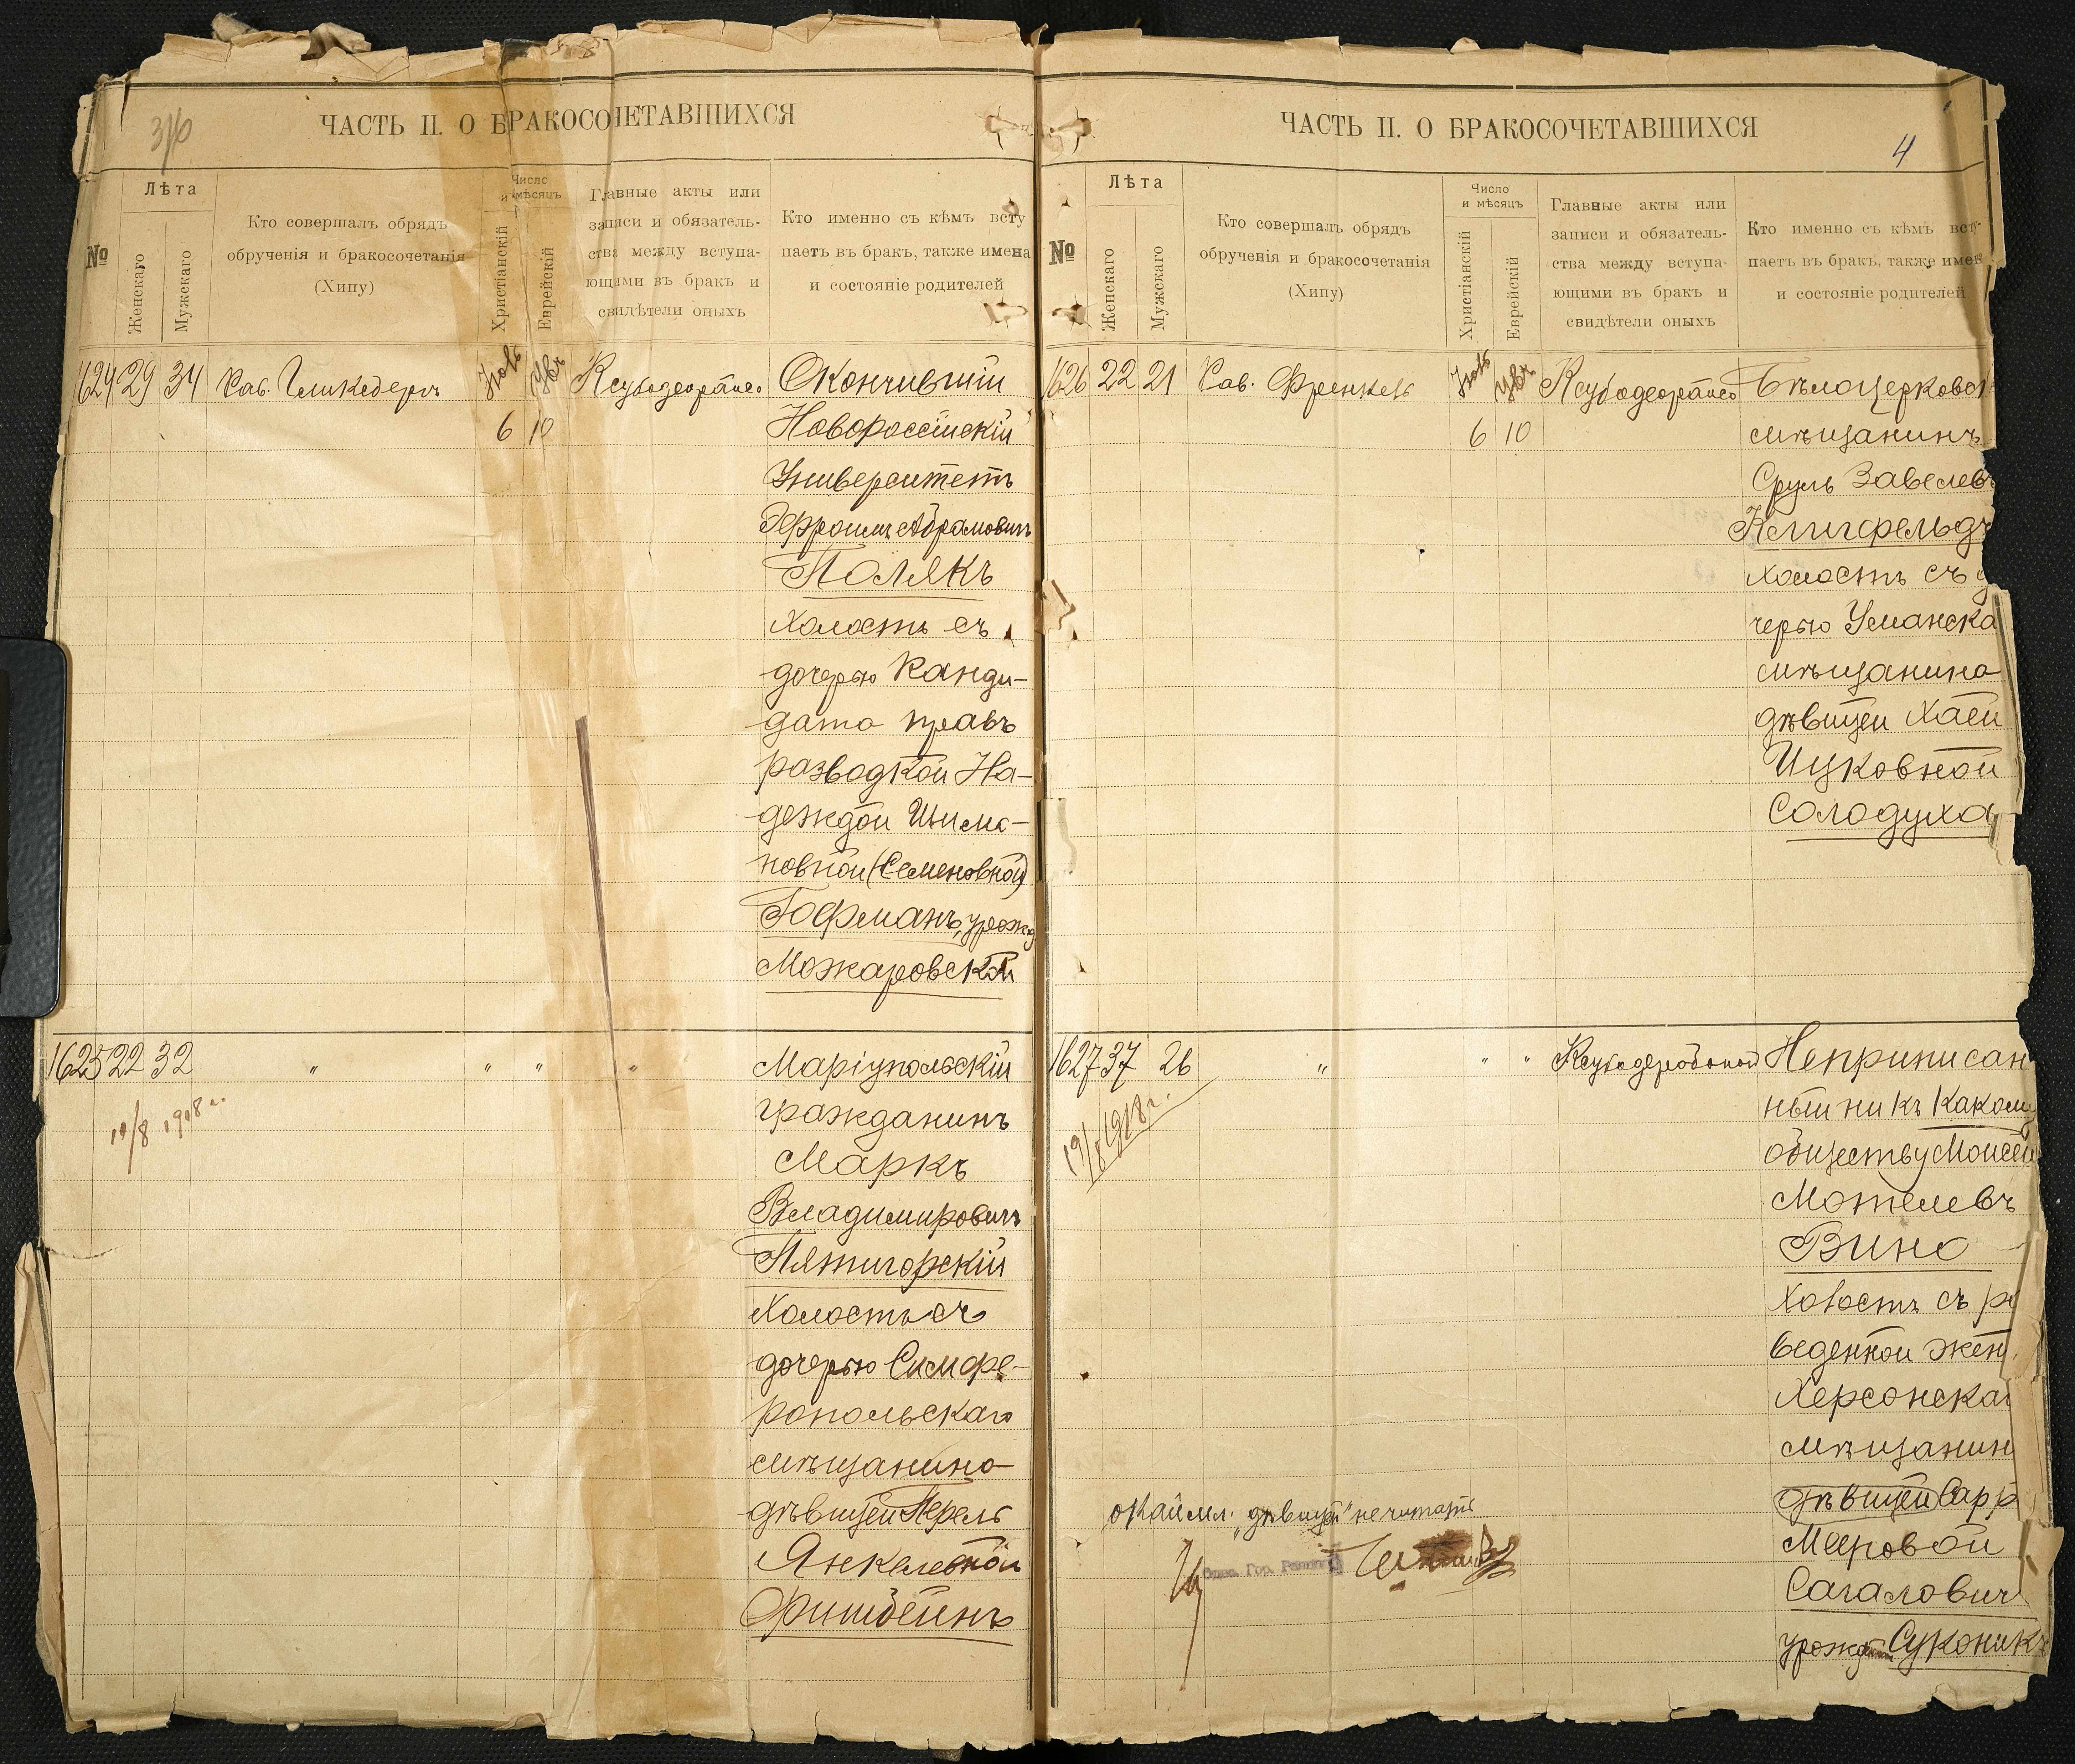 310
ЧАСТЬ II. О БРАКОСОЧЕТАВШИХСЯ
№
Лѣта
Женскаго
Мужскаго
Кто совершалъ обрядъ
обрученія и бракосочетанія
(Хипу)
Число
и мѣсяцъ
Христіанскій
Еврейскій
Главные акты или
записи и обязатель-
ства между вступа-
ющими въ бракъ и
свидѣтели оныхъ
Кто именно съ кѣмъ всту
паетъ въ бракъ, также имена
и состояніе родителей
1624 29 34 Рав. Іюль
6 10
Окончившій
Новороссійскій
Университетъ
Эфроимъ Абрамовичъ
Полякъ
Холостъ съ
дочерью Канди-
дата правъ
разводкой На-
деждой Шима-
новной (Семеновной)
Гофманъ, урожд
Можаровской
1625 22 32 " " " "
19/8 1918 г.
Маріупольскій
гражданинъ
Маркъ
Владимировичъ
Пятигорскій
Холостъ съ
дочерью Симфе-
ропольскаго
мѣщанина
дѣвицей Перель
Янкелевной
Фишбейнъ
ЧАСТЬ II. О БРАКОСОЧЕТАВШИХСЯ
4
№
Лѣта
Женскаго
Мужскаго
Кто совершалъ обрядъ
обрученія и бракосочетанія
(Хипу)
Число
и мѣсяцъ
Христіанскій
Еврейскій
Главные акты или
записи и обязатель-
ства между вступа-
ющими въ бракъ и
свидѣтели оныхъ
Кто именно съ кѣмъ всту-
паетъ въ бракъ, также имен
и состояніе родителей
1626 22 21 Рав. Френкель Іюль
6 10
Бѣлоцерковск
мѣщанинъ
Сруль Завелевъ
Клигфельдъ
холостъ съ д
черью Уманска
мѣщанина
дѣвицей Хаей
Ицковной
Солодуха
1627 37 26 " " "
19/8 1918 г.
Неприписан
ный ни къ каком
обществу Моисей
Мотелевъ
Вино
Холостъ съ р
веденной жен
Херсонскаг
мѣщанин
дѣвицей Сарр
Мееровой
Сагалович
урожд Суконикъ
Окаймл. „дѣвицей" не читать